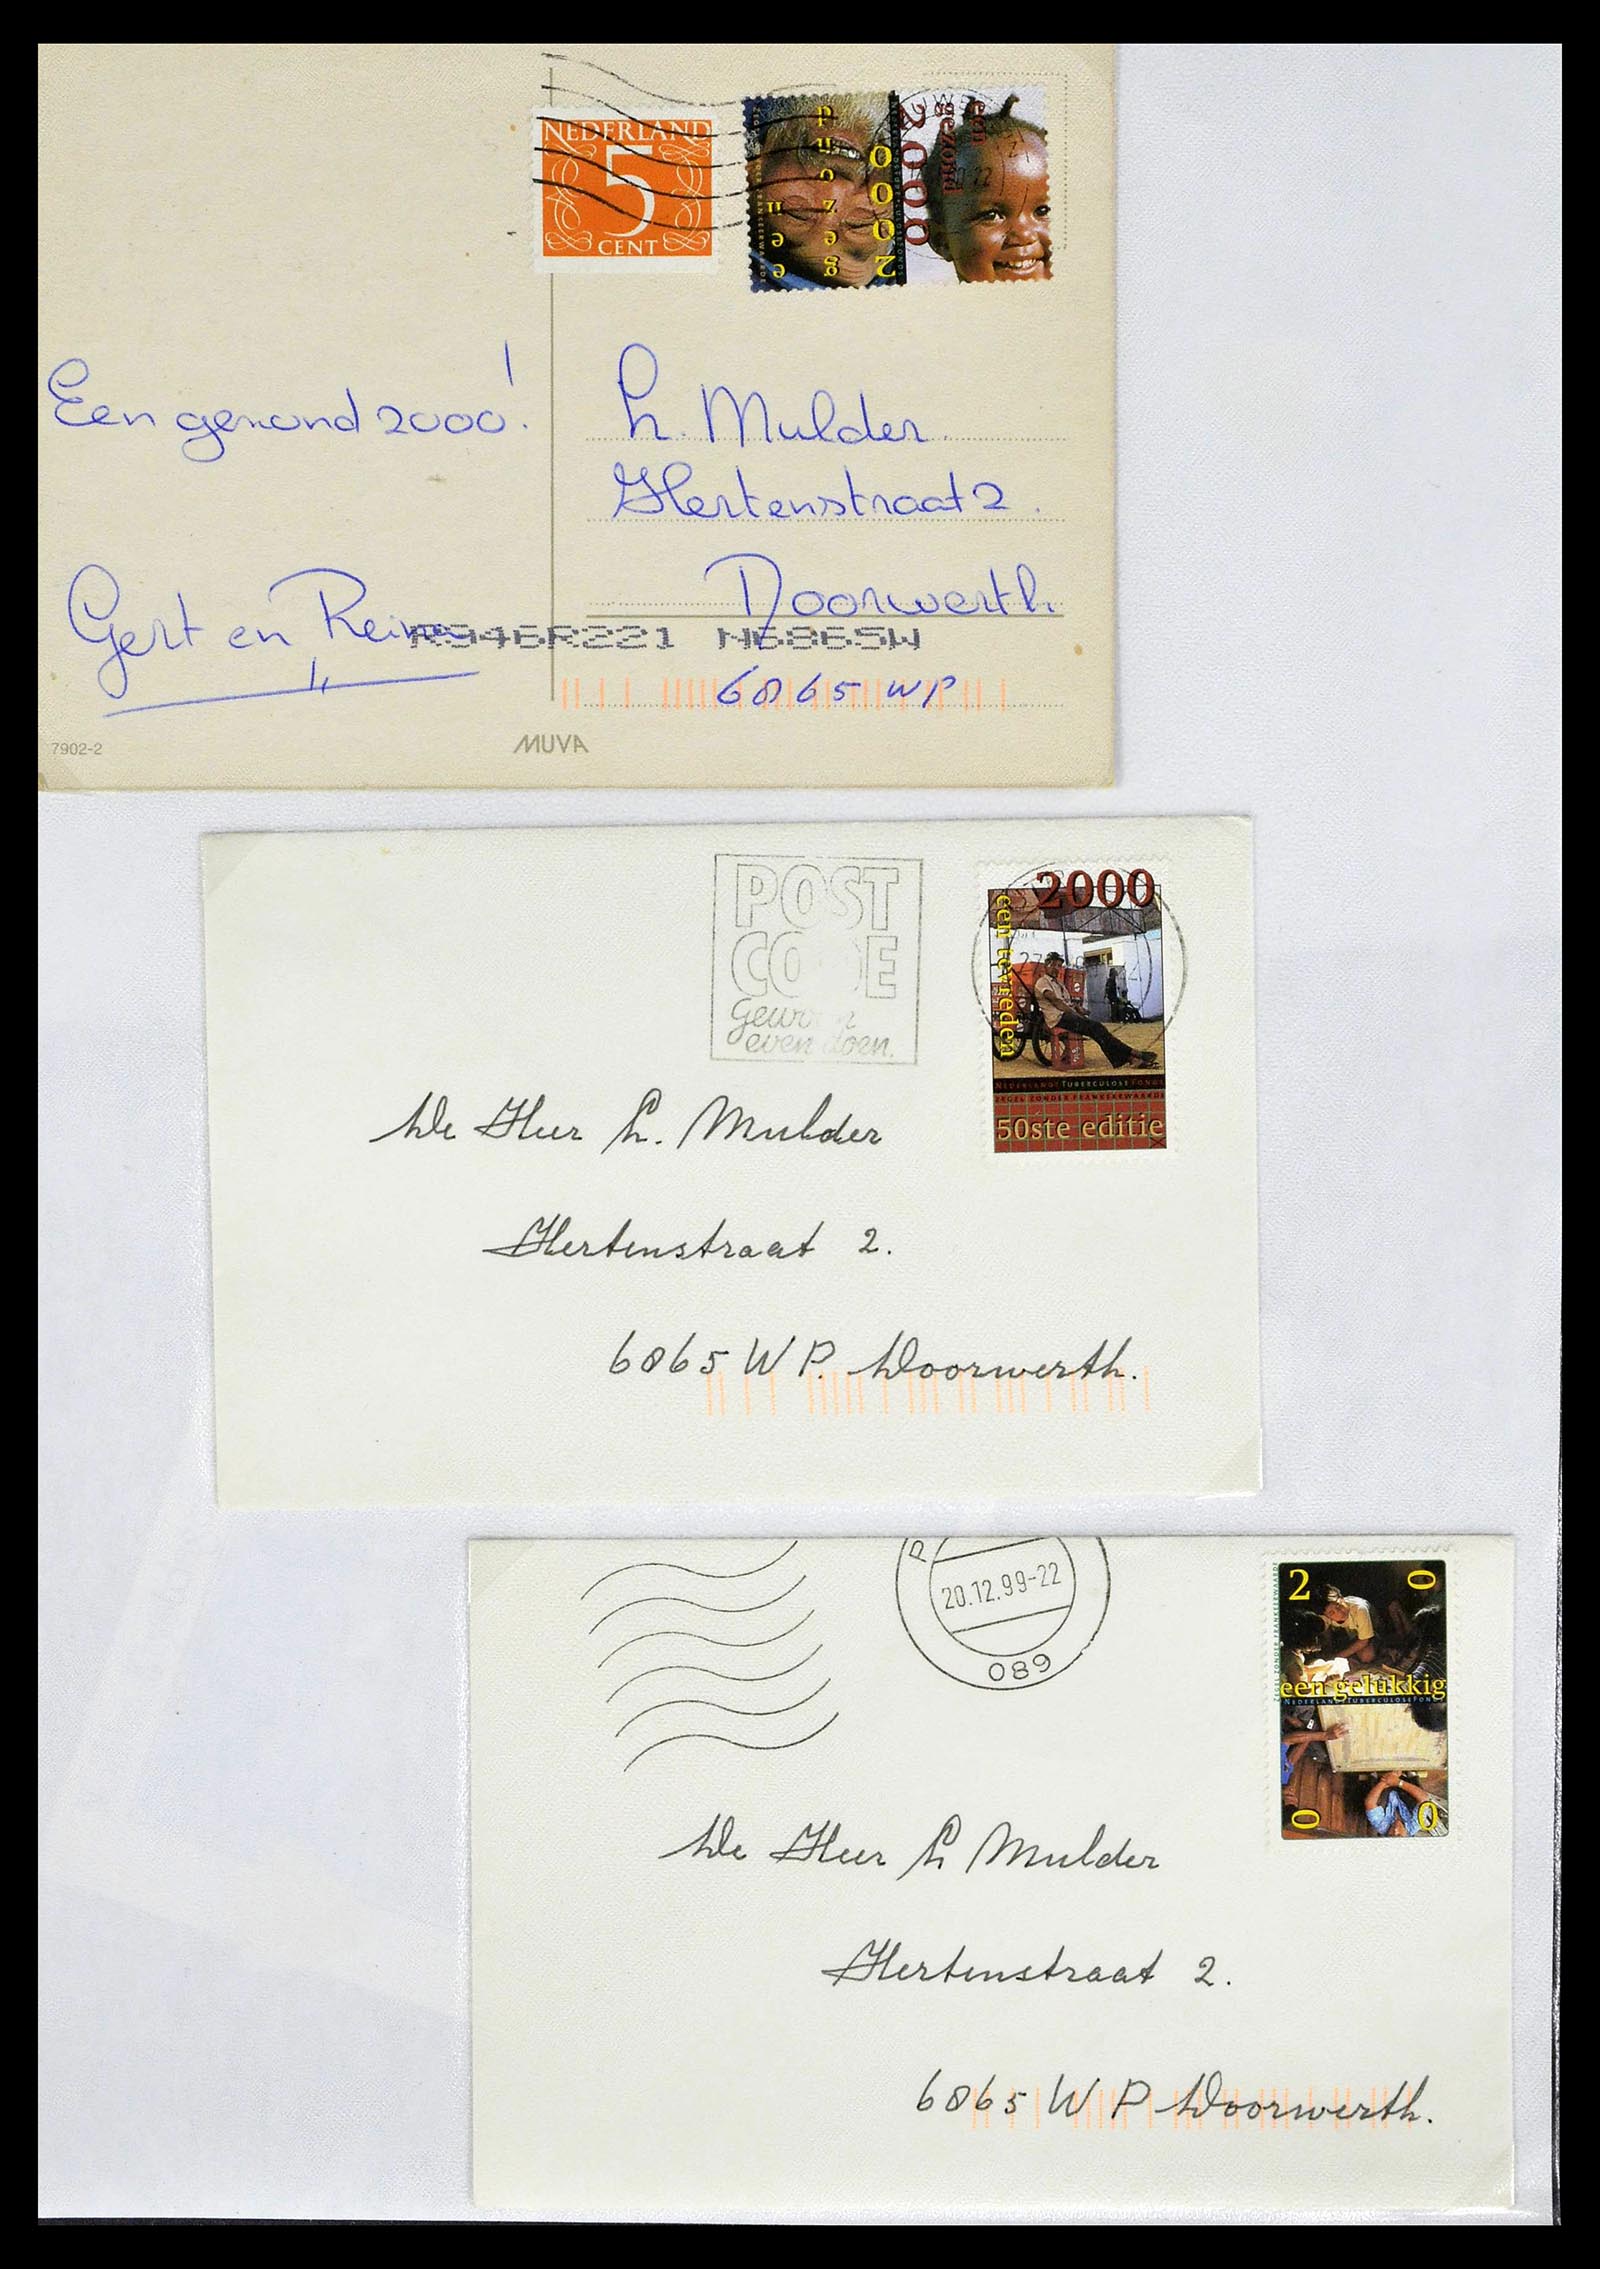 NEDERLAND
5
CENT
een gezond
2000
een gezond
2000
Een gezond 2000!
Gert en Reina
h. Mulder
Hertenstraat 2.
Doorwerth
R946R221 N6865W
6865 WP
7902-2
MUVA
POST
CODE
Gewoon
even doen.
2000
een tevreden
NEDERLANDS TUBERCULOSE FONDS
ZEGEL ZONDER FRANKEERWAARDE
50ste editie
De Heer h. Mulder
Hertenstraat 2.
6865 W P. Doorwerth.
P
20.12.99-22
089
2 0
ZEGEL ZONDER FRANKEERWAARDE
een gelukkig
NEDERLANDS TUBERCULOSE FONDS
0 0
De Heer h Mulder
Hertenstraat 2.
6865 W P Doorwerth.